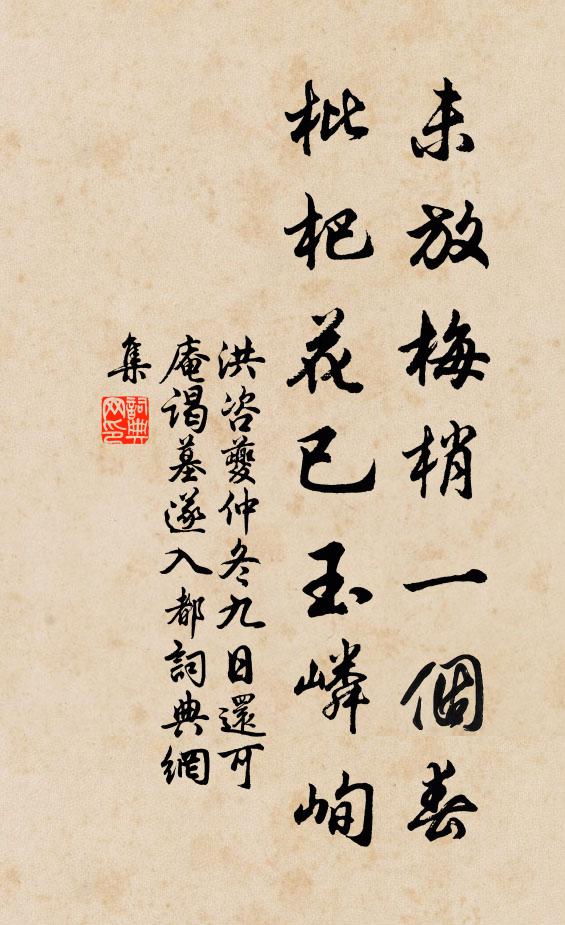 未放梅梢一個春
枇杷花已玉嶙峋
洪咨夔仲冬九日還可
庵謁墓遂入都詞典網
集
詞典網印